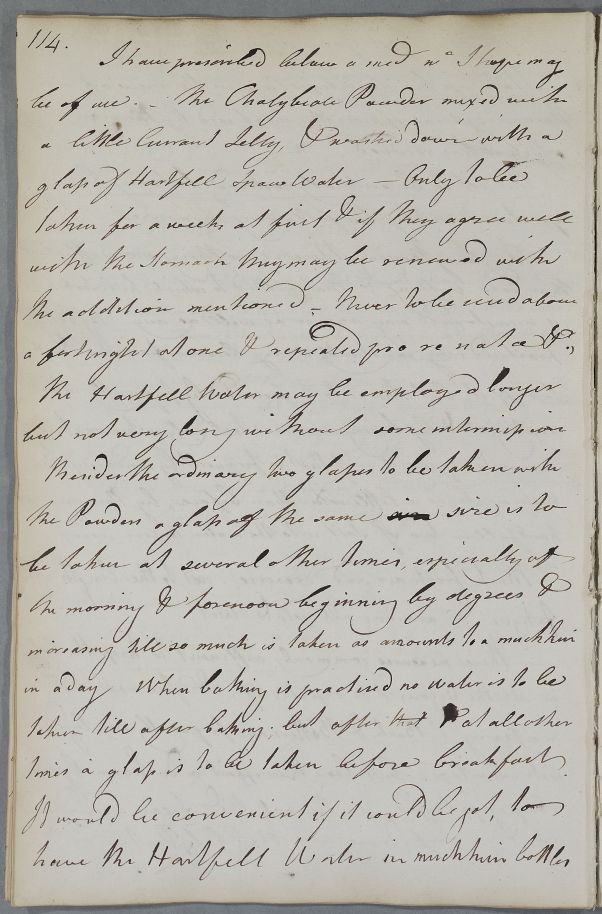 114.
I have prescribed below a med<sup>n</sup> I hope may
be of use. - The Chalybeate Powder mixed with
a little Currant Jelly, & washed down with a
glass of Hartfell Spaw Water - Only to be
taken for a week at first & if they agree well
with the Stomach they may be renewed with
the addition mentioned - Never to be used above
a fortnight at one & repeated pro re nata &c,
The Hartfell Water may be employed longer
but not very long without some intermission
Besides the ordinary two glasses to be taken with
the Powders a glass of the same size is to
be taken at several other times, especially of
the morning & forenoon beginning by degrees &
increasing till so much is taken as amounts to a mutchkin
in a day When bathing is practised no water is to be
taken till after bathing. but after that & at all other
times a glass is to be taken before breakfast
It would be convenient if it could be got, to
have the Hartfell Water in mutchkin bottles